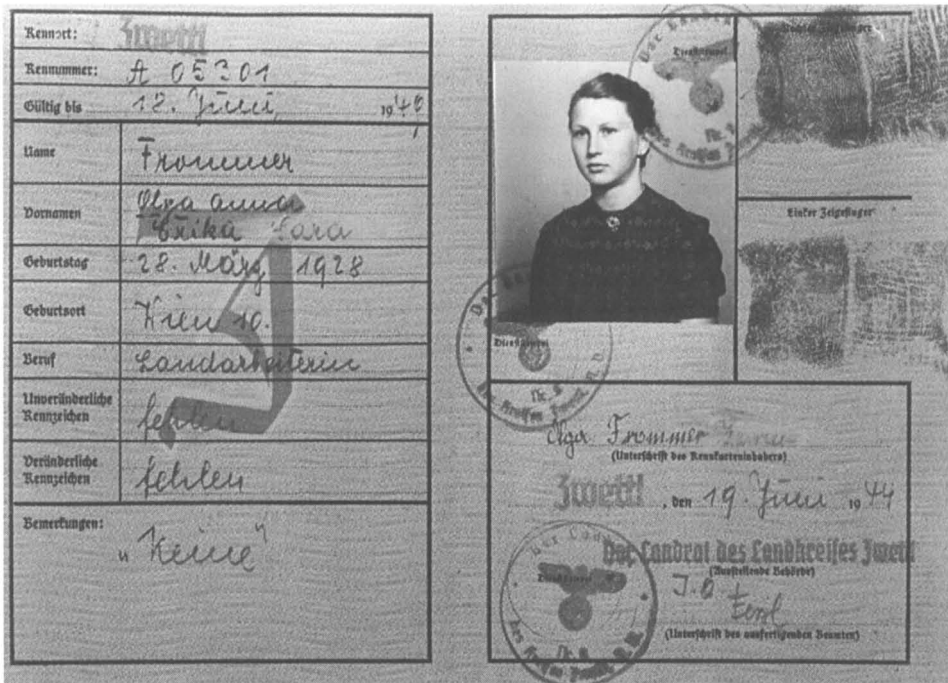 Kennort: Zwettl
Kennummer: A 05301
Gültig bis 18. Juni 1946
Name Frommer
Vornamen Olga Anna
Erika Sara
Geburtstag 28. März 1928
Geburtsort Wien 10.
Beruf Landarbeiterin
Unveränderliche
Kennzeichen fehlen
Veränderliche
Kennzeichen fehlen
Bemerkungen:
"Keine"
J
Dienststempel
Rechter Zeigefinger
Linker Zeigefinger
Dienststempel
Olga Frommer
(Unterschrift des Kennkarteninhabers)
Zwettl, den 19. Juni 1944
Der Landrat des Landkreises Zwettl
(Ausstellende Behörde)
Dienststempel
J.A
(Unterschrift des ausfertigenden Beamten)